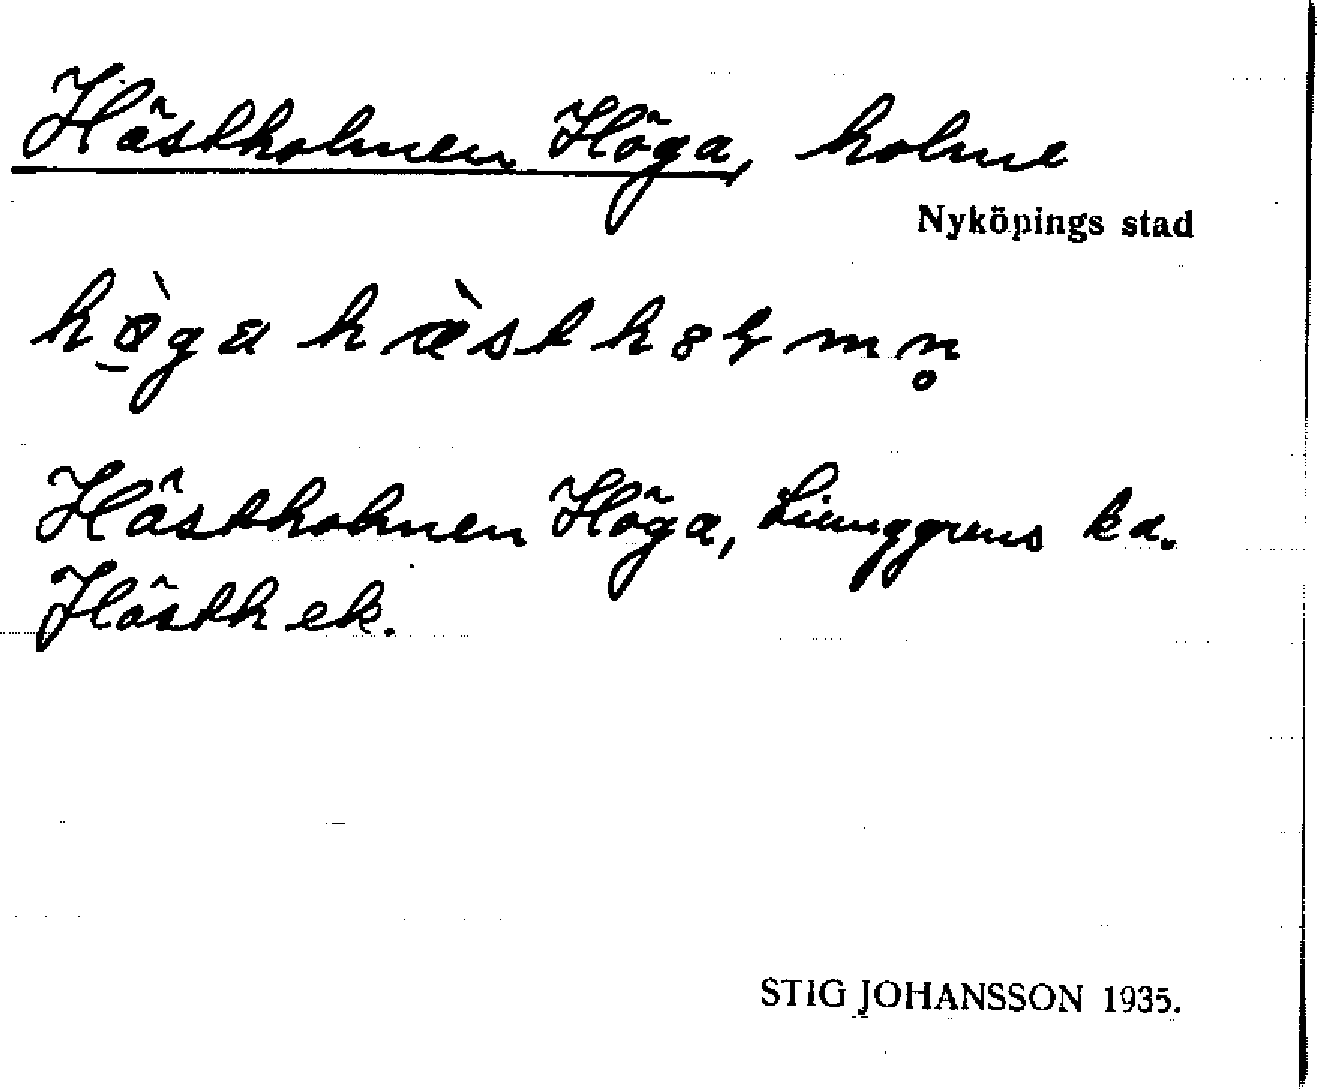 Hästholmen Höga, holme
Nyköpings stad
hø̀ga hæ̀stholmn̥
Hästholmen Höga, Ljunggrens ka.
Hästh ek.
STIG JOHANSSON 1935.